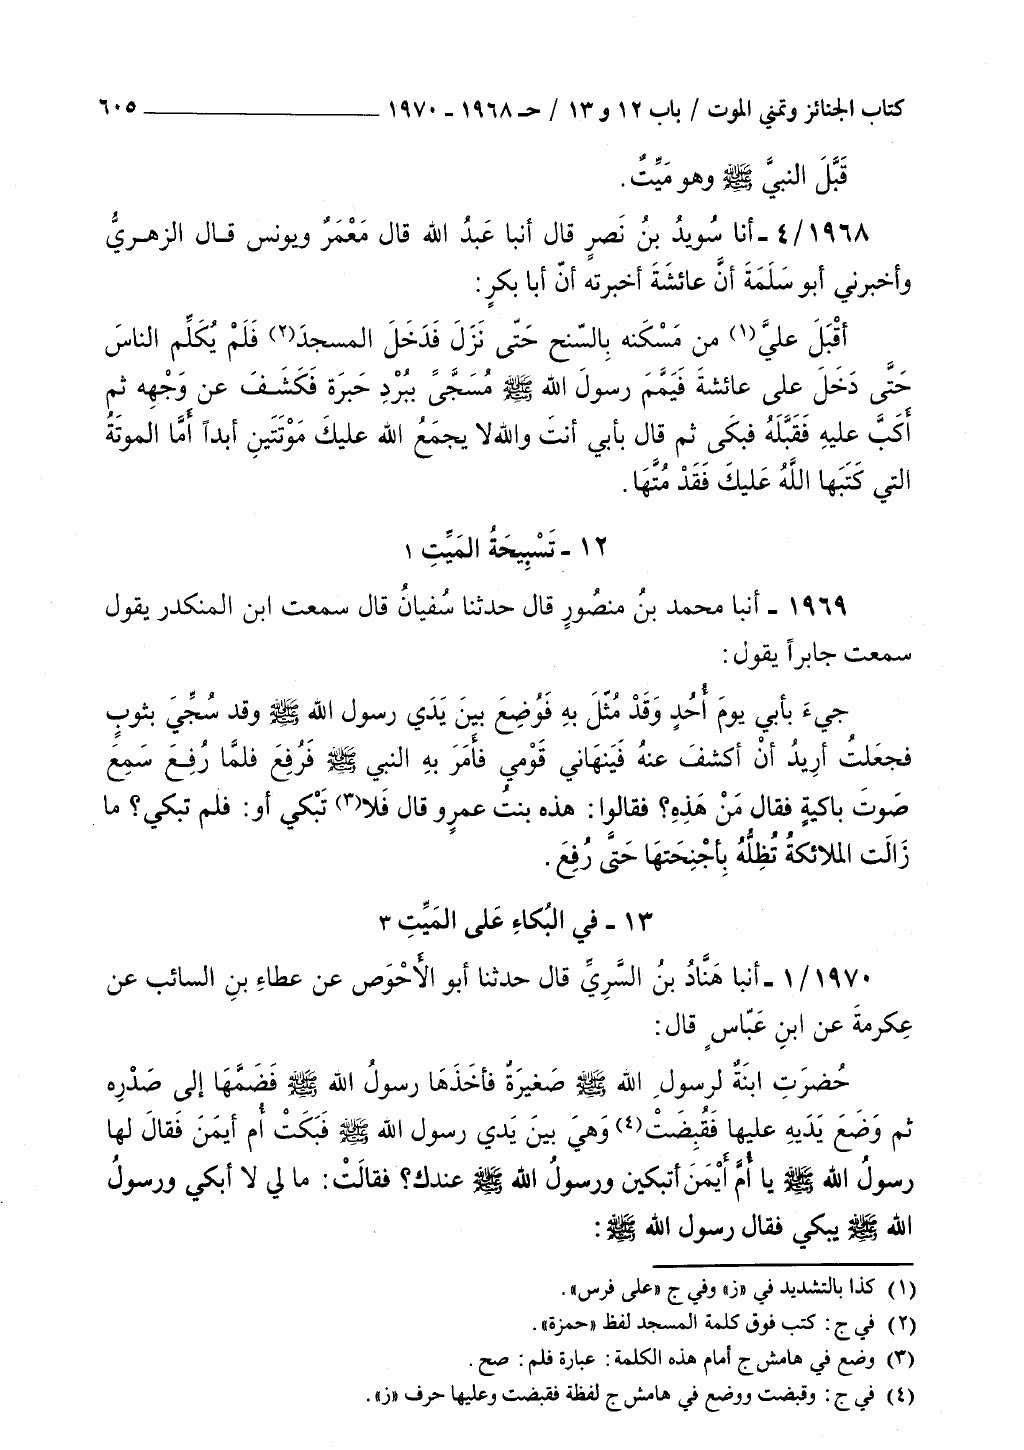 كتاب الجنائز وتمني الموت / باب ١٢ و ١٣ / حـ ١٩٦٨ - ١٩٧٠ ــــــــــــــــ ٦٠٥
قَبَّلَ النبيَّ ﷺ وهو مَيِّتٌ.
٤/١٩٦٨ - أنا سُويدُ بنُ نَصرٍ قال أنبا عَبدُ الله قال مَعْمَرٌ ويونس قـال الزهـريُّ
وأخبرني أبو سَلَمَةَ أنَّ عائشَةَ أخبرته أنّ أبا بكرٍ:
أقْبَلَ عليَّ(١) من مَسْكَنه بِالسّنح حَتّى نَزَلَ فَدَخَلَ المسجدَ(٢) فَلَمْ يُكَلِّم الناسَ
حَتَّى دَخَلَ على عائشةَ فَيَمَّمَ رسولَ الله ﷺ مُسَجَّىً بِبُرْدِ حَبَرَة فَكَشَـفَ عن وَجْهِه ثم
أَكَبَّ عليهِ فَقَبَّلَهُ فبكَى ثم قال بأبي أنتَ والله لا يجمَعُ الله عليكَ مَوْتَتَينِ أبداً أَمَّا الموتَةُ
التي كَتَبَها اللَّهُ عَليكَ فَقَدْ مُتَّهَا.
١٢ - تَسْبِيحَةُ المَيِّتِ ١
١٩٦٩ - أنبا محمد بنُ منصُورٍ قال حدثنا سُفيانُ قال سمعت ابن المنكدر يقول
سمعت جابراً يقول:
جيءَ بأبي يومَ أُحُدٍ وَقَدْ مُثّلَ بهِ فَوُضِعَ بينَ يَدَي رسول الله ﷺ وقد سُجِّيَ بثوبٍ
فجعَلتُ أريدُ أنْ أكشفَ عنهُ فَيَنهَاني قَوْمي فأمَرَ بهِ النبي ﷺ فَرُفِعَ فلمَّا رُفِعَ سَمِعَ
صَوتَ باكيةٍ فقال مَنْ هَذِهِ؟ فقالوا: هذه بنتُ عمرٍو قال فَلا(٣) تَبْكي أو: فلم تبكي؟ ما
زَالَت الملائكةُ تُظِلُّهُ بِأجْنِحَتهَا حَتَّى رُفِعَ.
١٣ - في البُكاءِ عَلى المَيِّتِ ٣
١/١٩٧٠ - أنبا هَنَّادُ بنُ السَرِيِّ قال حدثنا أبو الأَحْوَص عن عطاءِ بنِ السائب عن
عِكرمةَ عن ابنِ عَبّاسٍ قال:
حُضرَتِ ابنَةٌ لرسول الله ﷺ صَغيرَةٌ فأخَذَهَا رسولُ الله ﷺ فَضَمَّهَا إلى صَدْرِه
ثم وَضَعَ يَدَيهِ عليها فَقُبِضَتْ(٤) وَهيَ بينَ يَدي رسول الله ﷺ فَبَكَتْ أُم أيمَنَ فَقالَ لها
رسولُ الله ﷺ يا أُمَّ أَيْمَنَ أتبكين ورسولُ الله ﷺ عندك؟ فقالَتْ: ما لي لا أبكي ورسولُ
الله ﷺ يبكي فقال رسول الله ﷺ:
(١) كذا بالتشديد في «ز» وفي ج «على فرس».
(٢) في ج: كتب فوق كلمة المسجد لفظ «حمزة».
(٣) وضع في هامش ج أمام هذه الكلمة: عبارة فلم: صح.
(٤) في ج: وقبضت ووضع في هامش ج لفظة فقبضت وعليها حرف «ز».